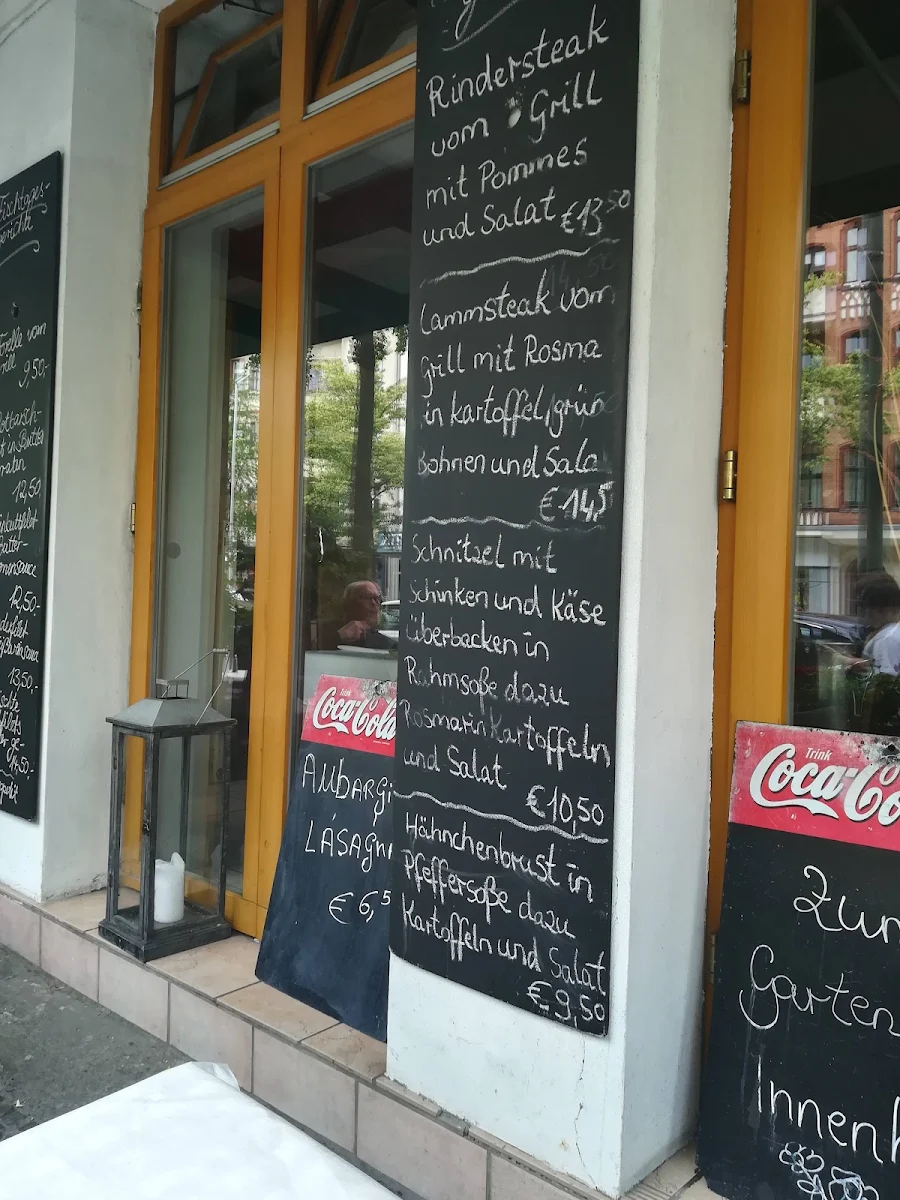 Fischtages-
gerichte
vom
9,50,-
in Butter
12,50
Butter-
12,50-
13,50,-
Rindersteak
vom Grill
mit Pommes
und Salat €13,50
Lammsteak vom
Grill mit Rosma
in kartoffel, grün
Bohnen und Sala
€ 14,5
Schnitzel mit
Schinken und Käse
überbacken in
Rahmsoße dazu
Rosmarinkartoffeln
und Salat
€10,50
Hähnchenbrust in
Pfeffersoße dazu
Kartoffeln und Salat
€9,50
Trink
Coca-Cola
AUBARGi
LÁSAGN
€ 6,5
Trink
Coca-Co
Zum
Garten
Innenh